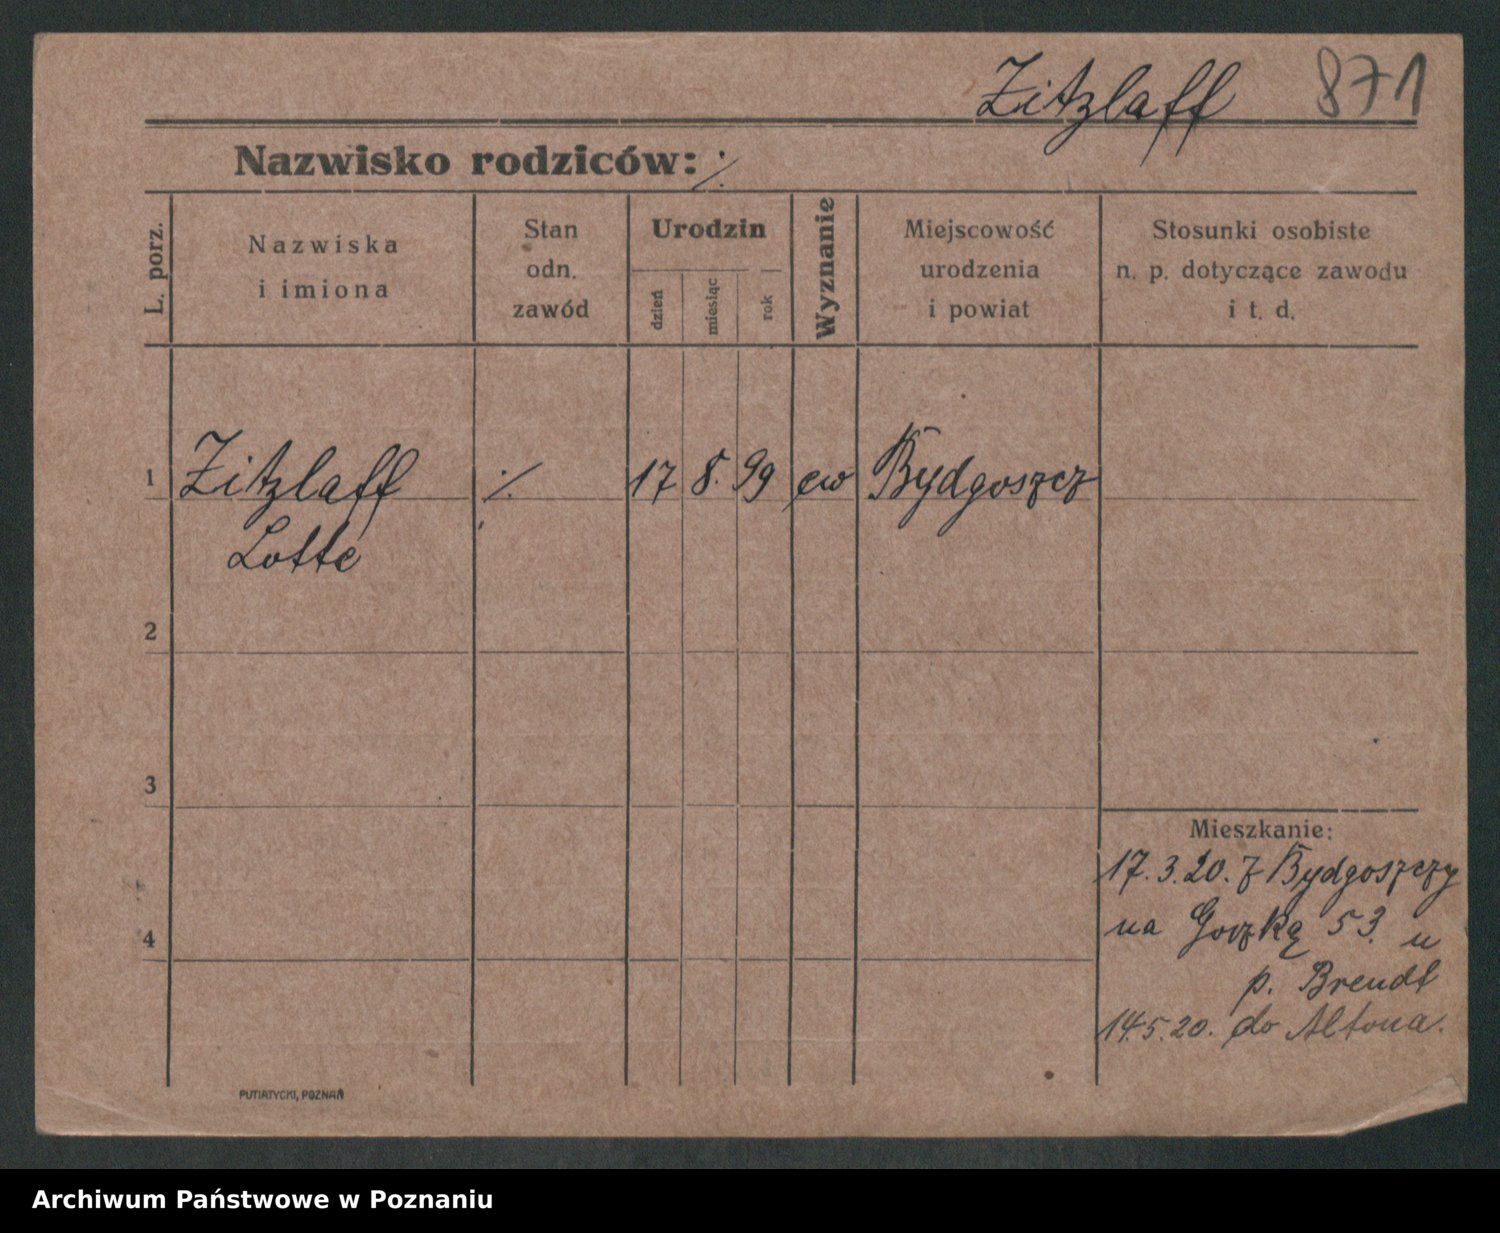 Zitzlaff 871
Nazwisko rodziców: ·/.
L. porz.
Nazwiska
i imiona
Stan
odn.
zawód
Urodzin
dzień
miesiąc
rok
Wyznanie
Miejscowość
urodzenia
i powiat
Stosunki osobiste
n. p. dotyczące zawodu
i t. d.
1 Zitzlaff ·/. 17 8. 99 ew Bydgoszcz
Lotte
2
3
Mieszkanie:
17.3.20. z Bydgoszczy
na Gorzką 53. u
4
p. Brendt
14.5.20. do Altona.
PUTIATYCKI, POZNAŃ
Archiwum Państwowe w Poznaniu